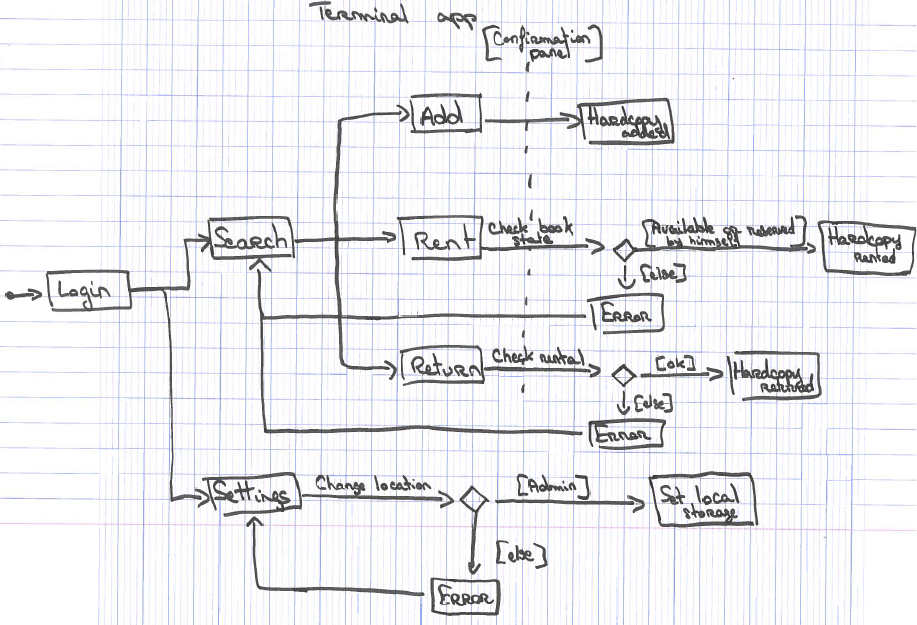 Terminal app
[Confirmation
panel]
Add
Hardcopy
added
Search
Rent
Check book
state
[Available or reserved
by himself]
Hardcopy
Rented
[else]
Login
Error
Return
Check rental
[ok]
Hardcopy
[else]
Error
Settings
Change location
[Admin]
Set local
storage
[else]
Error